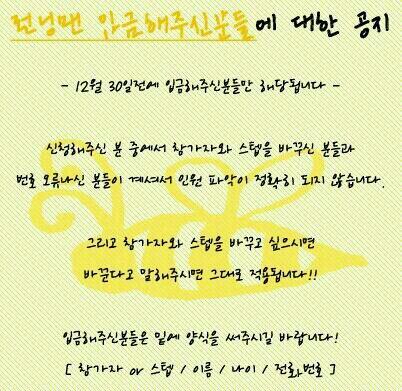 런닝맨 입금해주신분들에 대한 공지
- 12월 30일전에 입금해주신분들만 해당됩니다 -
신청해주신 분 중에서 참가자와 스텝을 바꾸신 분들과
번호 오류나신 분들이 계셔서 인원 파악이 정확히 되지 않습니다.
그리고 참가자와 스텝을 바꾸고 싶으시면
바꾼다고 말해주시면 그대로 적용됩니다!!
입금해주신분들은 밑에 양식을 써주시길 바랍니다!
[ 참가자 or 스텝 / 이름 / 나이 / 전화번호 ]